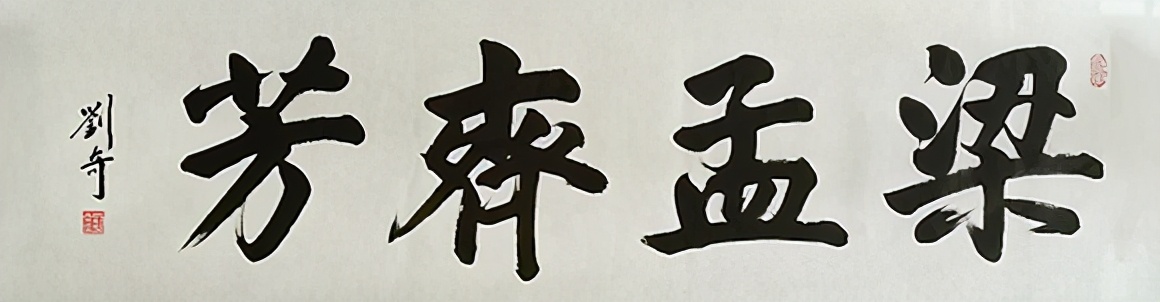 梁孟齊芳
劉奇